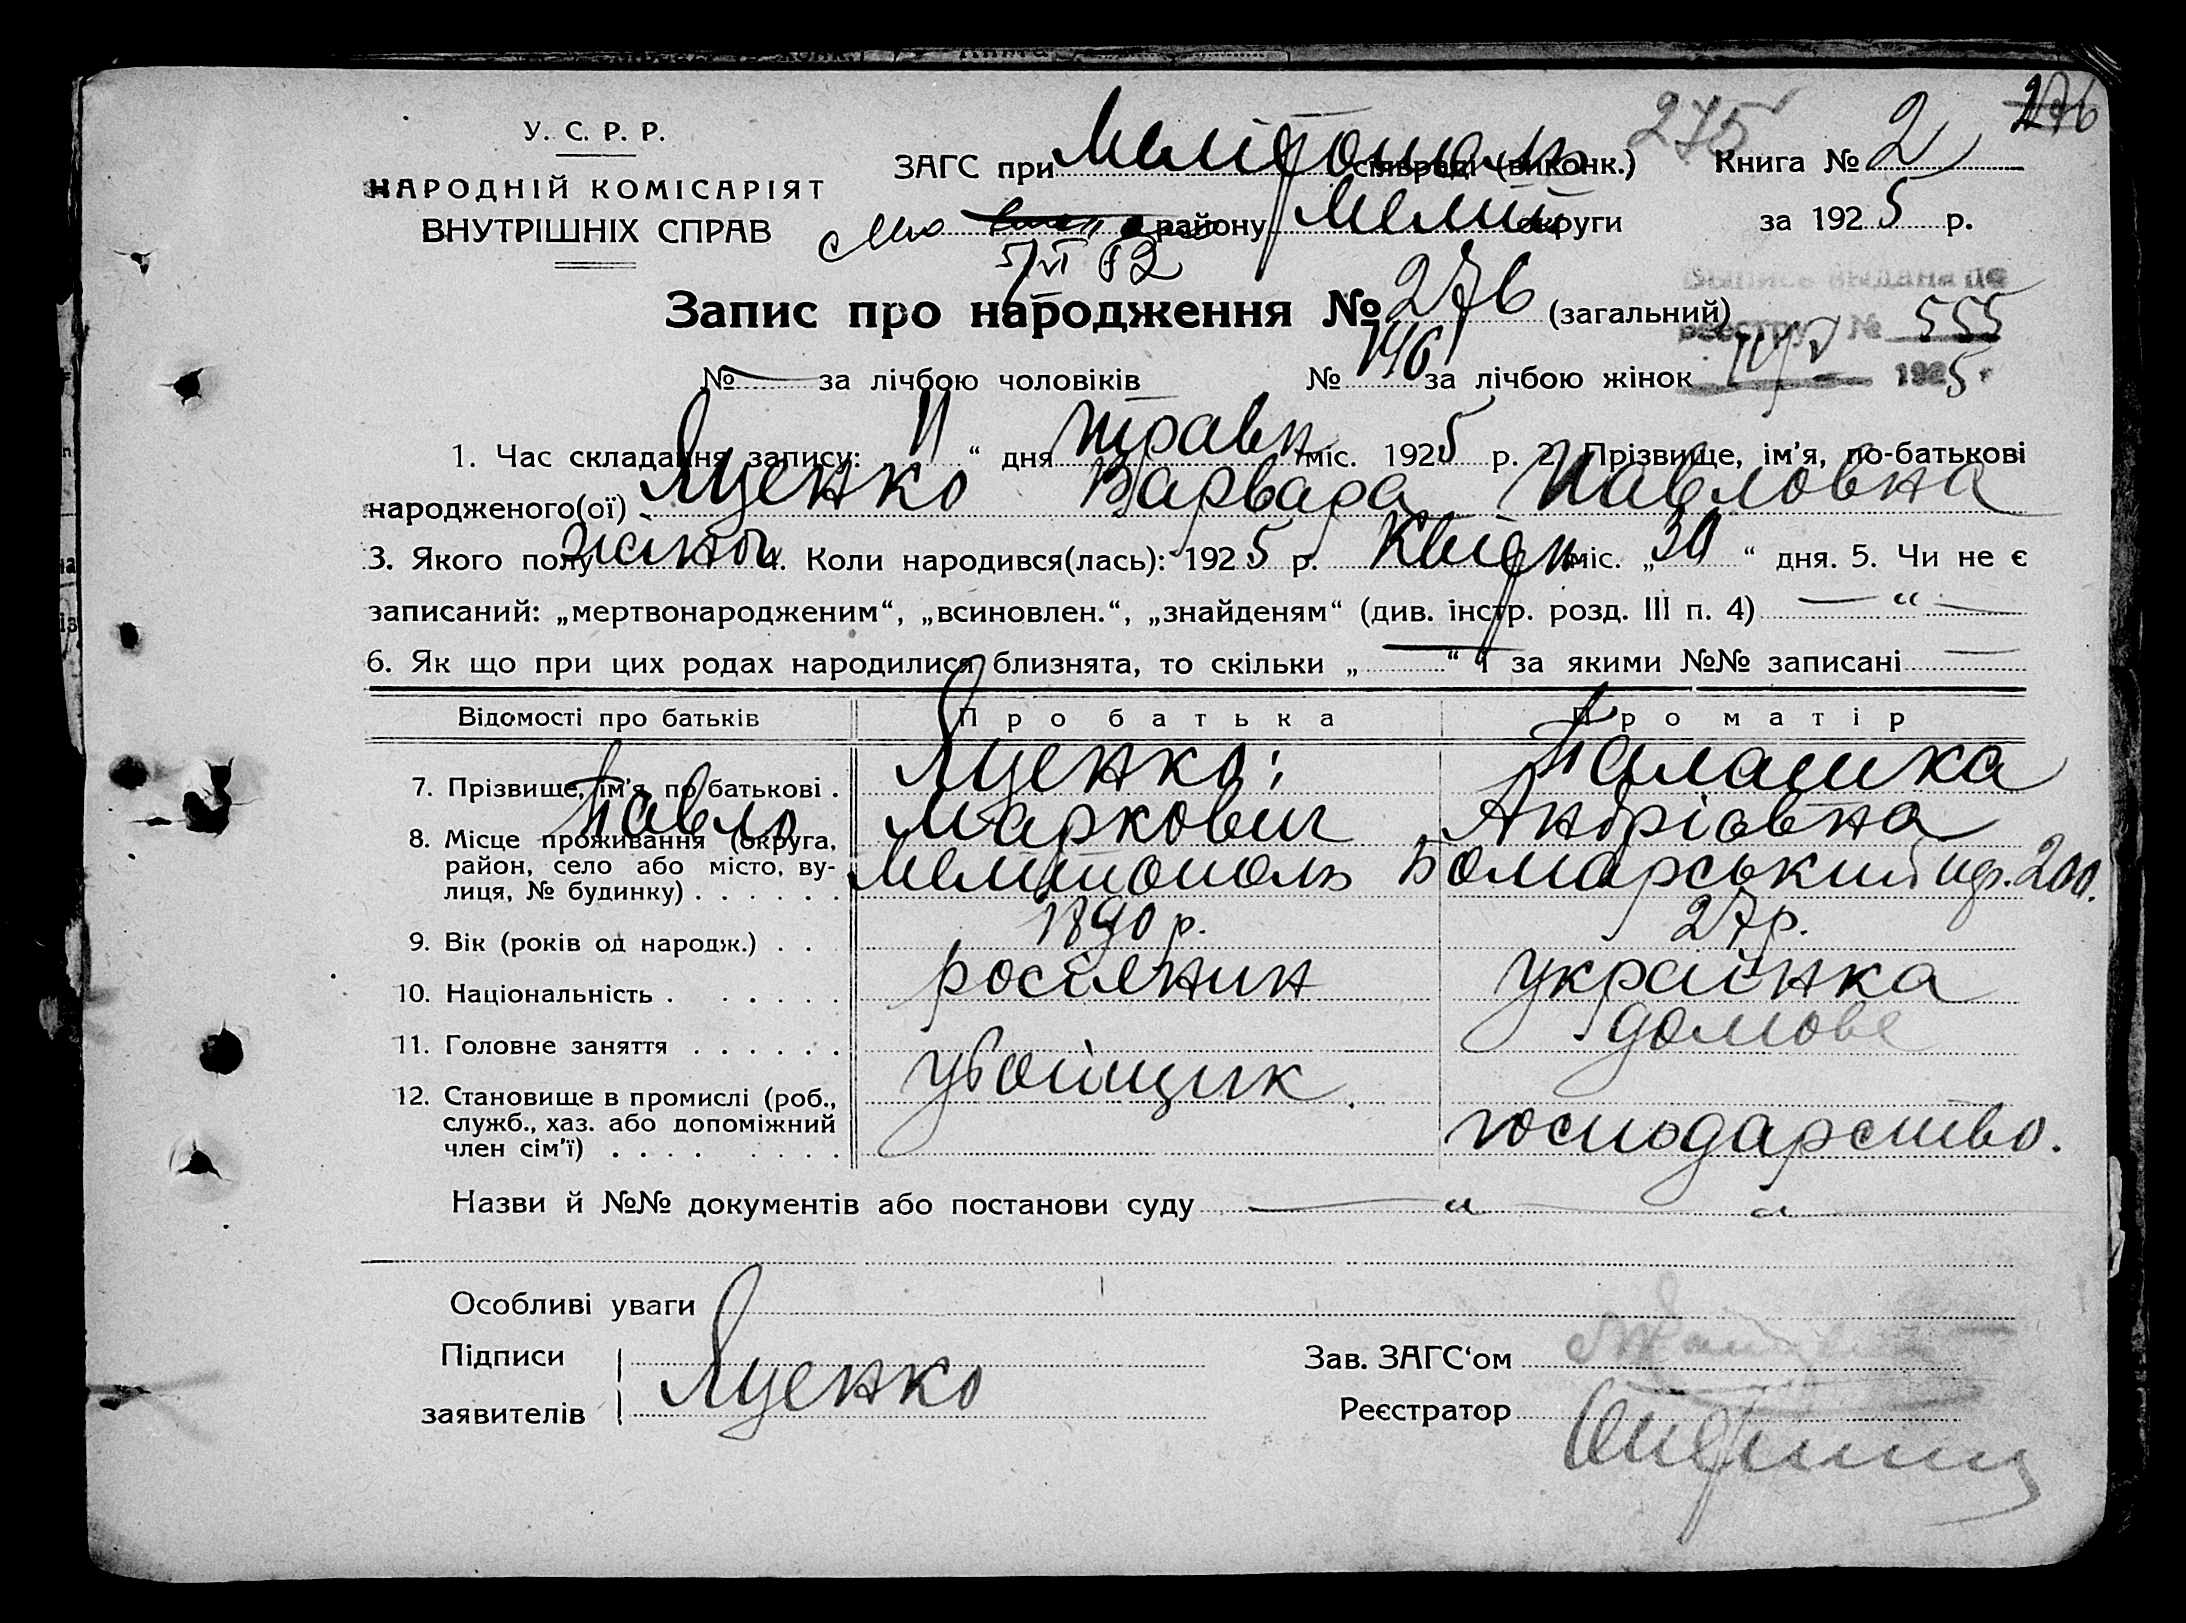 275 276
У. С. Р. Р.
ЗАГС при Мелітополь сільраді (виконк.) Книга № 2
НАРОДНІЙ КОМІСАРІЯТ
ВНУТРІШНІХ СПРАВ
району Меліт округи за 1925 р.
5/VI 82
Запис про народження № 276 (загальний)
реестру № 555
№ — за лічбою чоловіків № 146 за лічбою жінок
1925 г
1. Час складання запису: „11“ дня травн міс. 1925 р. 2. Прізвище, ім'я, по-батькові
народженого(ої) Яценко Варвара Павловна
3. Якого полу жіноч 4. Коли народився(лась): 1925 р. Квітн міс. „30“ дня. 5. Чи не є
записаний: „мертвонародженим“, „всиновлен.“, „знайденям“ (див. інстр. розд. III п. 4) — “ —
6. Як що при цих родах народилися близнята, то скільки „—“ і за якими №№ записані —
Відомості про батьків Про батька Про матір
7. Прізвище, ім'я, по батькові . Яценко Палашка
Павло Маркович Андріовна
8. Місце проживання (округа,
район, село або місто, ву-
лиця, № будинку) . . . . . . Мелітополь Бомарський пр. 200.
9. Вік (років од народж.) . . 1890 р. 27 р.
10. Національність . . . . . . росіянин українка
11. Головне заняття . . . . . . убойщик. домове
12. Становище в промислі (роб.,
служб., хаз. або допоміжний
член сім'ї) . . . . . . . . господарство.
Назви й №№ документів або постанови суду — “ — “ —
Особливі уваги
Підписи
заявителів Яценко
Зав. ЗАГС‘ом
Реєстратор